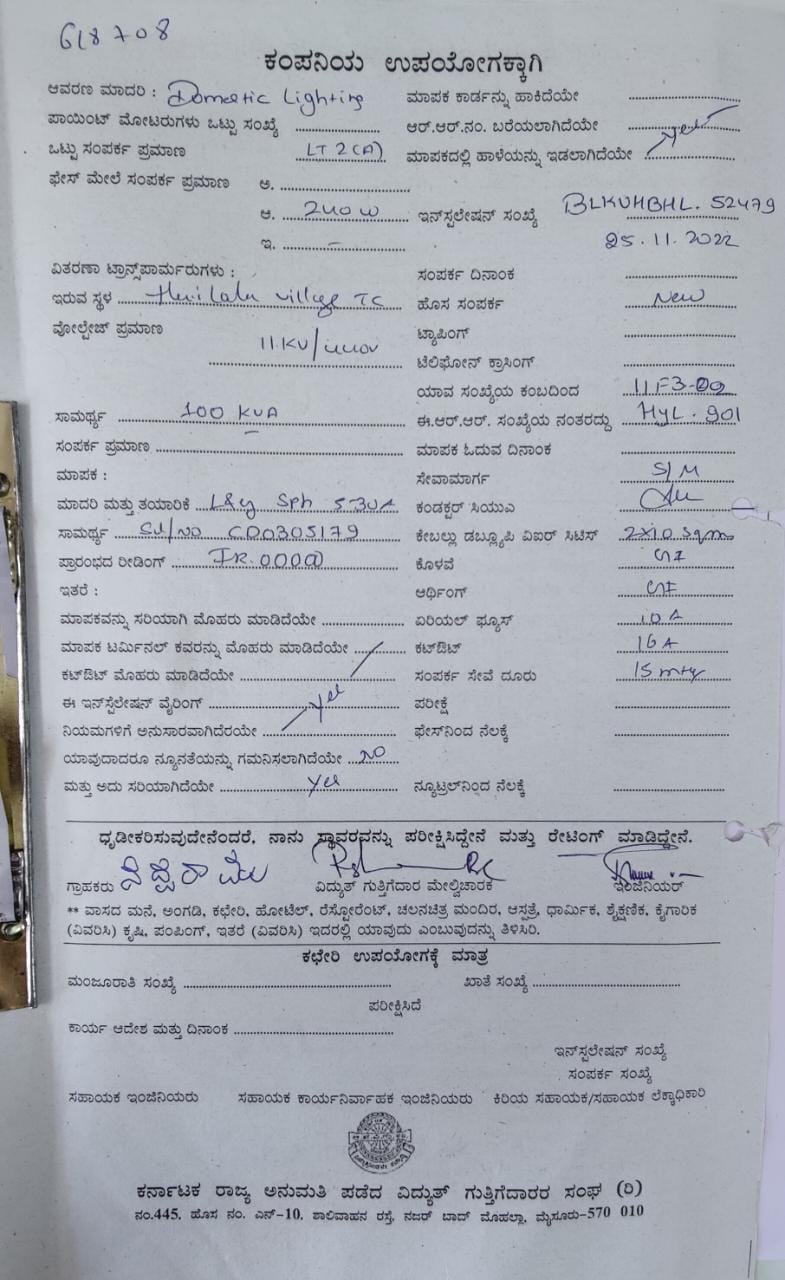 618708
ಕಂಪನಿಯ ಉಪಯೋಗಕ್ಕಾಗಿ
ಆವರಣ ಮಾದರಿ : Domestic Lighting ಮಾಪಕ ಕಾರ್ಡನ್ನು ಹಾಕಿದೆಯೇ
ಪಾಯಿಂಟ್ ಮೋಟರುಗಳು ಒಟ್ಟು ಸಂಖ್ಯೆ ಆರ್.ಆರ್.ನಂ. ಬರೆಯಲಾಗಿದೆಯೇ
ಒಟ್ಟು ಸಂಪರ್ಕ ಪ್ರಮಾಣ LT 2(A) ಮಾಪಕದಲ್ಲಿ ಹಾಳೆಯನ್ನು ಇಡಲಾಗಿದೆಯೇ yes
ಫೇಸ್ ಮೇಲೆ ಸಂಪರ್ಕ ಪ್ರಮಾಣ ಅ.
ಆ. 240 W ಇನ್‌ಸ್ಟಲೇಷನ್ ಸಂಖ್ಯೆ BLKUHBHL. 52479
ಇ. – 25.11.2022
ವಿತರಣಾ ಟ್ರಾನ್ಸ್‌ಪಾರ್ಮರುಗಳು : ಸಂಪರ್ಕ ದಿನಾಂಕ
ಇರುವ ಸ್ಥಳ village TC ಹೊಸ ಸಂಪರ್ಕ New
ವೋಲ್ಟೇಜ್ ಪ್ರಮಾಣ 11 KV/440V ಟ್ಯಾಪಿಂಗ್
ಟೆಲಿಫೋನ್ ಕ್ರಾಸಿಂಗ್
ಯಾವ ಸಂಖ್ಯೆಯ ಕಂಬದಿಂದ 11F3-09
ಸಾಮರ್ಥ್ಯ 100 KVA ಈ.ಆರ್.ಆರ್. ಸಂಖ್ಯೆಯ ನಂತರದ್ದು HYL.901
ಸಂಪರ್ಕ ಪ್ರಮಾಣ ಮಾಪಕ ಓದುವ ದಿನಾಂಕ
ಮಾಪಕ : ಸೇವಾಮಾರ್ಗ S/M
ಮಾದರಿ ಮತ್ತು ತಯಾರಿಕೆ L&G Sph 530A ಕಂಡಕ್ಟರ್ ಸಿಯುಎ
ಸಾಮರ್ಥ್ಯ Sl/No CD0305179 ಕೇಬಲ್ಲು ಡಬ್ಲ್ಯೂಪಿ ವಿಐರ್ ಸಿಟಿಸ್ 2X10 Sqmm
ಪ್ರಾರಂಭದ ರೀಡಿಂಗ್ IR. 0000 ಕೊಳವೆ GI
ಇತರೆ : ಆರ್ಥಿಂಗ್ GI
ಮಾಪಕವನ್ನು ಸರಿಯಾಗಿ ಮೊಹರು ಮಾಡಿದೆಯೇ ಏರಿಯಲ್ ಫ್ಯೂಸ್ 10 A
ಮಾಪಕ ಟರ್ಮಿನಲ್ ಕವರನ್ನು ಮೊಹರು ಮಾಡಿದೆಯೇ ಕಟ್‌ಔಟ್ 16 A
ಕಟ್‌ಔಟ್ ಮೊಹರು ಮಾಡಿದೆಯೇ ಸಂಪರ್ಕ ಸೇವೆ ದೂರು 15 mtr
ಈ ಇನ್‌ಸ್ಟಲೇಷನ್ ವೈರಿಂಗ್ yes ಪರೀಕ್ಷೆ
ನಿಯಮಗಳಿಗೆ ಅನುಸಾರವಾಗಿದೆರಯೇ ಫೇಸ್‌ನಿಂದ ನೆಲಕ್ಕೆ
ಯಾವುದಾದರೂ ನ್ಯೂನತೆಯನ್ನು ಗಮನಿಸಲಾಗಿದೆಯೇ NO
ಮತ್ತು ಅದು ಸರಿಯಾಗಿದೆಯೇ yes ನ್ಯೂಟ್ರಲ್‌ನಿಂದ ನೆಲಕ್ಕೆ
ಧೃಡೀಕರಿಸುವುದೇನೆಂದರೆ, ನಾನು ಸ್ಥಾವರವನ್ನು ಪರೀಕ್ಷಿಸಿದ್ದೇನೆ ಮತ್ತು ರೇಟಿಂಗ್ ಮಾಡಿದ್ದೇನೆ.
ಗ್ರಾಹಕರು ವಿದ್ಯುತ್ ಗುತ್ತಿಗೆದಾರ ಮೇಲ್ವಿಚಾರಕ ಇಂಜಿನಿಯರ್
** ವಾಸದ ಮನೆ, ಅಂಗಡಿ, ಕಛೇರಿ, ಹೋಟೆಲ್, ರೆಸ್ಟೋರೆಂಟ್, ಚಲನಚಿತ್ರ ಮಂದಿರ, ಆಸ್ಪತ್ರೆ, ಧಾರ್ಮಿಕ, ಶೈಕ್ಷಣಿಕ, ಕೈಗಾರಿಕ
(ವಿವರಿಸಿ) ಕೃಷಿ, ಪಂಪಿಂಗ್, ಇತರೆ (ವಿವರಿಸಿ) ಇದರಲ್ಲಿ ಯಾವುದು ಎಂಬುವುದನ್ನು ತಿಳಿಸಿರಿ.
ಕಛೇರಿ ಉಪಯೋಗಕ್ಕೆ ಮಾತ್ರ
ಮಂಜೂರಾತಿ ಸಂಖ್ಯೆ ಖಾತೆ ಸಂಖ್ಯೆ
ಪರೀಕ್ಷಿಸಿದೆ
ಕಾರ್ಯ ಆದೇಶ ಮತ್ತು ದಿನಾಂಕ
ಇನ್‌ಸ್ಟಲೇಷನ್ ಸಂಖ್ಯೆ
ಸಂಪರ್ಕ ಸಂಖ್ಯೆ
ಸಹಾಯಕ ಇಂಜಿನಿಯರು ಸಹಾಯಕ ಕಾರ್ಯನಿರ್ವಾಹಕ ಇಂಜಿನಿಯರು ಕಿರಿಯ ಸಹಾಯಕ/ಸಹಾಯಕ ಲೆಕ್ಕಾಧಿಕಾರಿ
ಕರ್ನಾಟಕ ರಾಜ್ಯ ಅನುಮತಿ ಪಡೆದ ವಿದ್ಯುತ್ ಗುತ್ತಿಗೆದಾರರ ಸಂಘ (ರಿ)
ನಂ.445, ಹೊಸ ನಂ. ಎನ್-10, ಶಾಲಿವಾಹನ ರಸ್ತೆ, ನಜರ್ ಬಾದ್ ಮೊಹಲ್ಲಾ, ಮೈಸೂರು-570 010